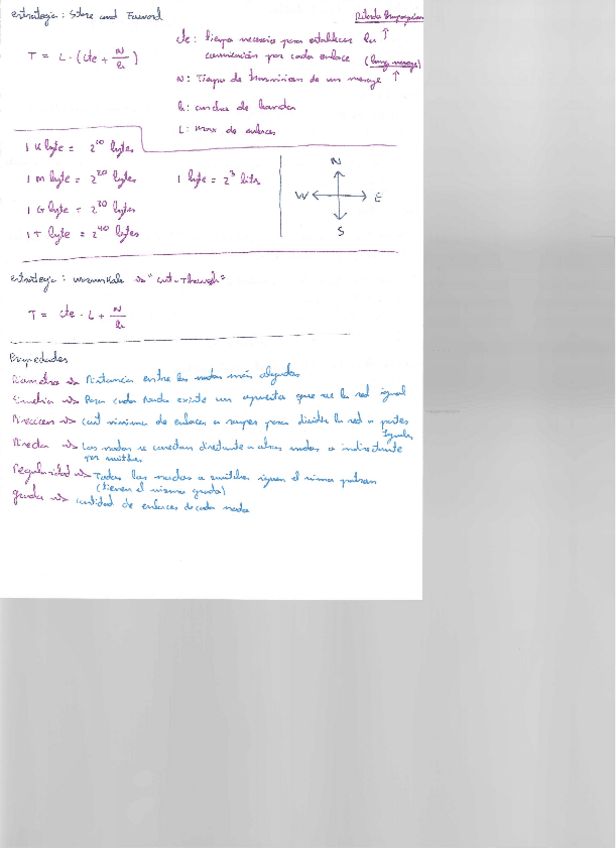 estrategia: Store and Forward
Retardo Propagación
T = L · (cte + N/b)
cte: tiempo necesario para establecer la ↑
comunicación por cada enlace
N: Tiempo de transmision de un mensaje ↑
b: ancho de banda
L: max de enlaces
1 K byte = 2^10 bytes
1 M byte = 2^20 bytes 1 byte = 2^3 bits
1 G byte = 2^30 bytes
1 T byte = 2^40 bytes
N
W E
S
estrategia: wormhole "cut-Through"
T = cte · L + N/b
Propiedades
Diametro Distancia entre los nodos más alejados
Simetria Para cada nodo existe un que ve la red igual
Biseccion cant minima de enlaces a romper para dividir la red en partes
iguales
Directa Los nodos se conectan directamente a otros nodos o indirectamente
por switches
Regularidad Todos los nodos o switches siguen el mismo patron
(tienen el mismo grado)
grado cantidad de enlaces de cada nodo